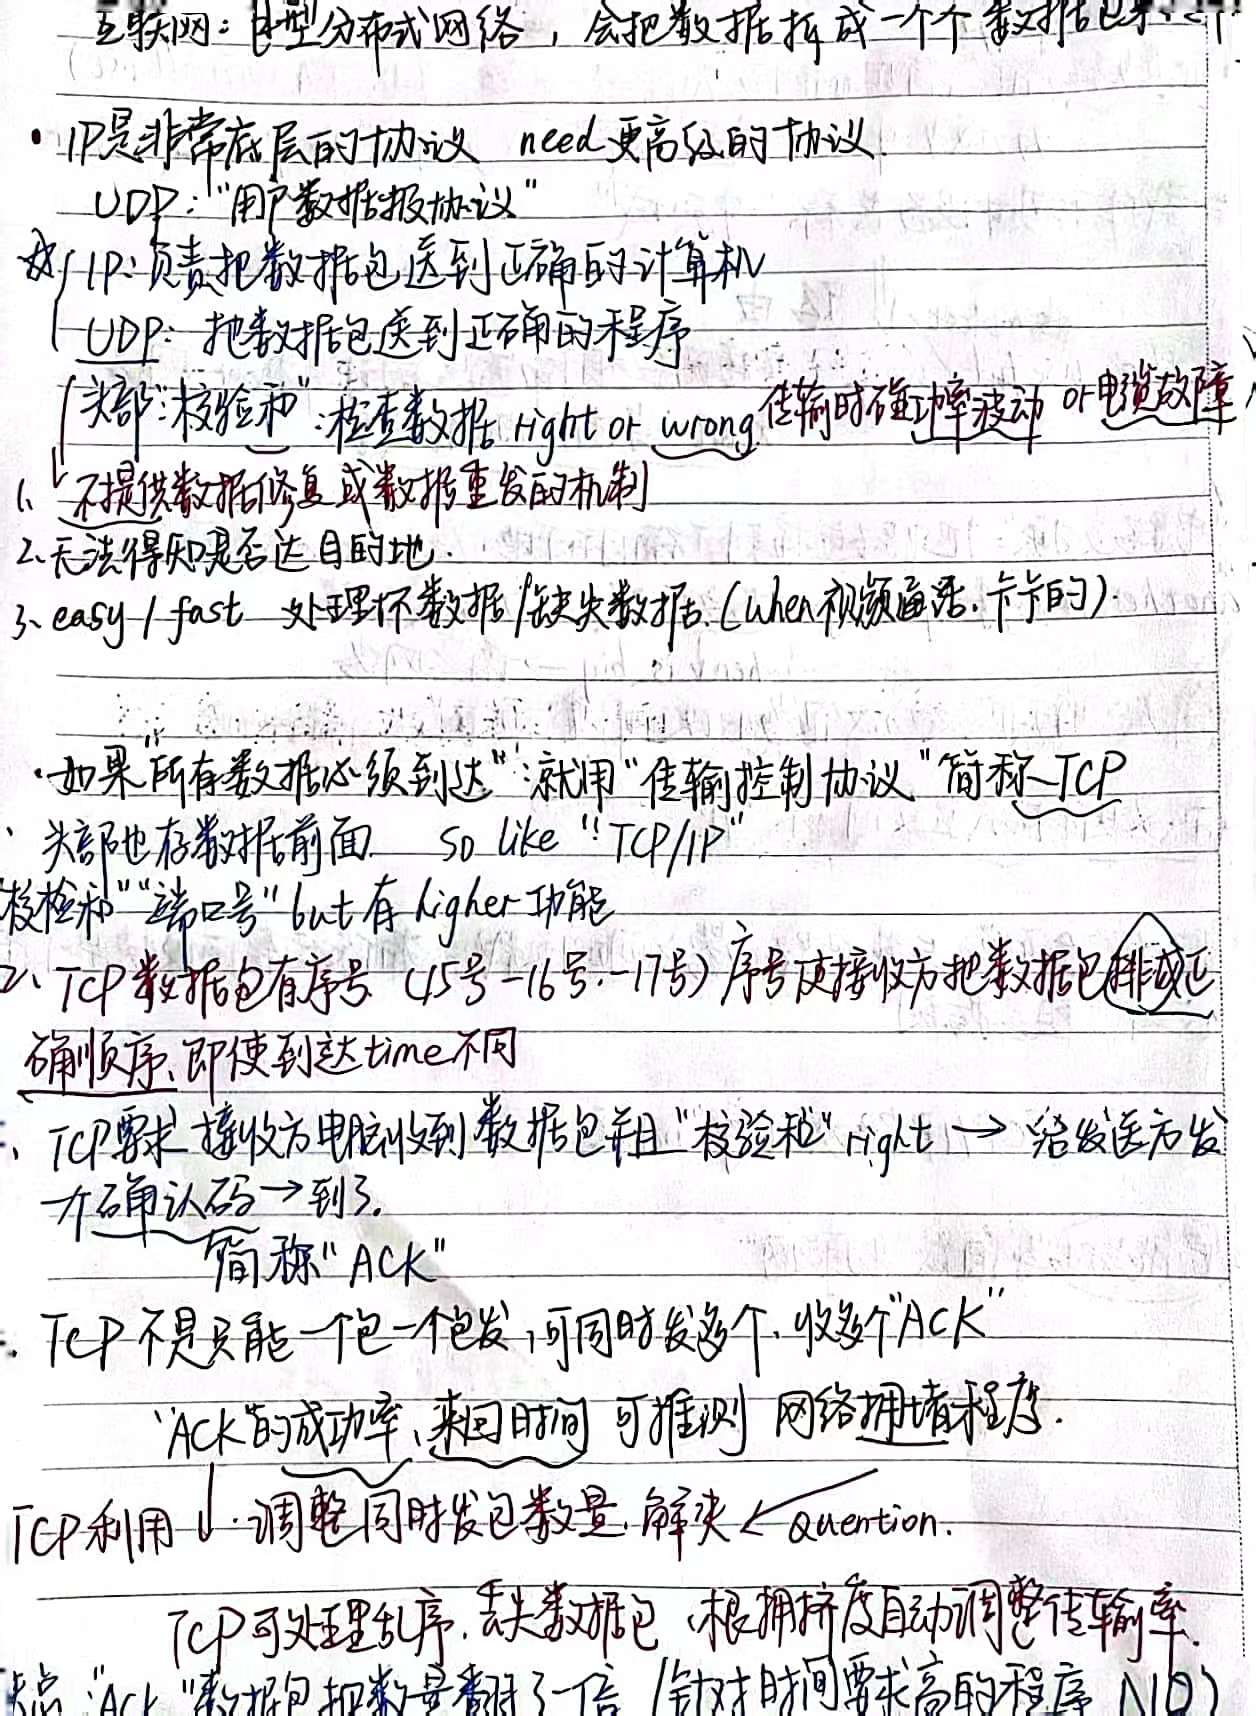 互联网：巨型分布式网络，会把数据拆成一个个数据包来
· IP是非常底层的协议 need更高级的协议.
UDP："用户数据报协议"
☆ IP：负责把数据包送到正确的计算机
UDP：把数据包送到正确的程序
头部："校验和"：检查数据right or wrong 传输时碰功率波动 or电缆故障
1、不提供数据修复或数据重发的机制
2、无法得知是否达目的地.
3、easy/fast 处理坏数据/缺失数据.(when视频通话.卡卡的).
·如果"所有数据必须到达"：就用"传输控制协议"简称TCP
头部也存数据前面 so like "TCP/IP"
校检和""端口号"but有higher功能
2、TCP数据包有序号 (15号-16号-17号) 序号使接收方把数据包排成正
确顺序、即使到达time不同
、TCP要求 接收方电脑收到数据包并且"校验和"right → 给发送方发
个确认码→到了.
简称"ACK"
. TCP不是只能一个包一个包发,可同时发多个、收多个"ACK"
"ACK"的成功率、来回时间 可推测 网络拥堵程度.
TCP利用↓·调整同时发包数量.解决← Quention.
TCP可处理乱序.丢失数据包、根拥挤度自动调整传输率.
缺点："Ack"数据包把数量翻了一倍 (针对时间要求高的程序 NO)